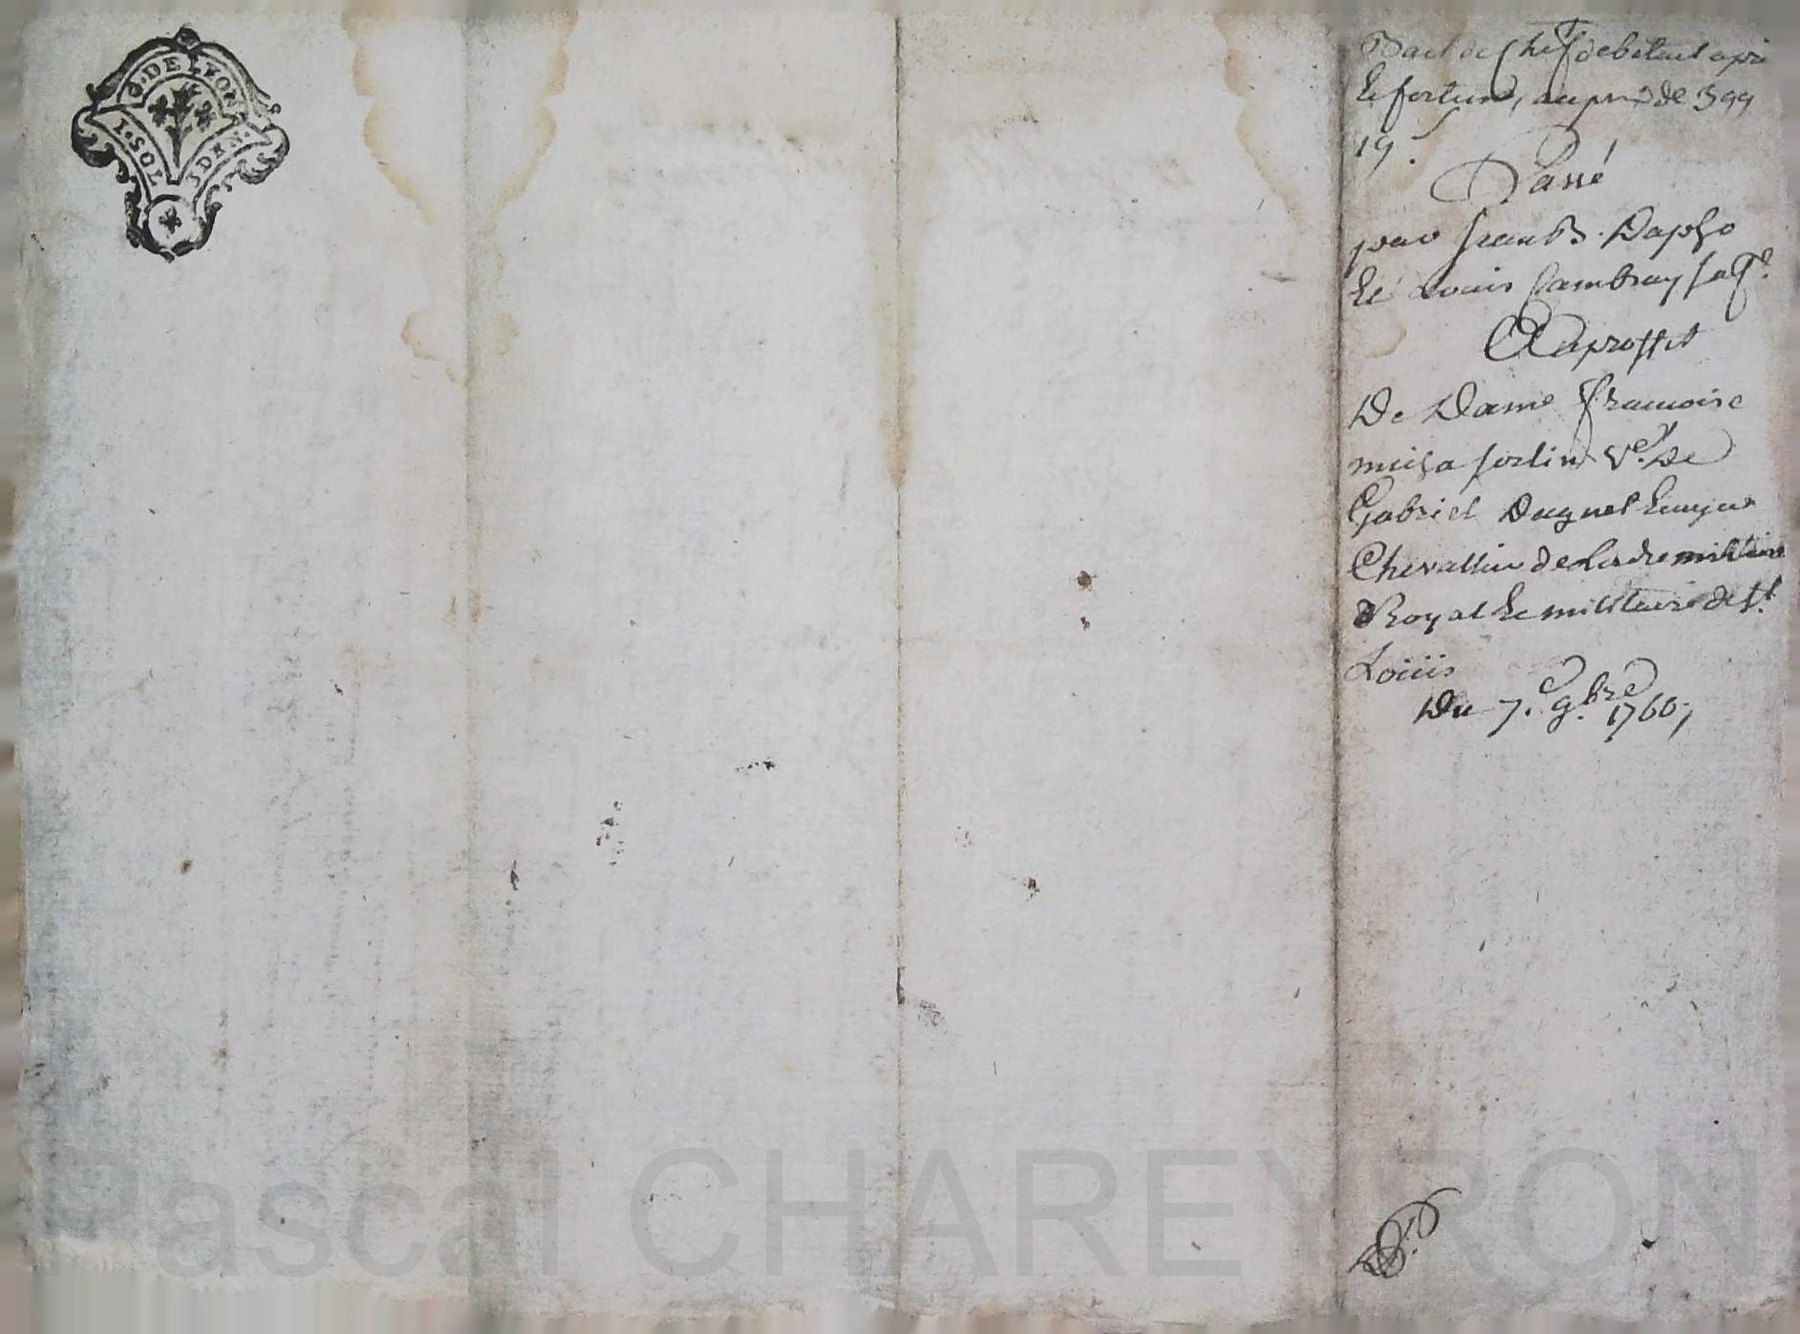 G. DE LYON
1. SOL DEN.
Bail de Chef de betail a pri
et fortune, au prix de 399
19.
Passé
par
et Louis Cambray
Au proffit
De Dame francoise
forlin Ve. De
Gabriel Dugnet Ecuyer
Chevallier de Lordre militaire
Royal et militaire de St.
Loüis
Du 7.e 9.bre 1760,
Pascal CHAREYRON